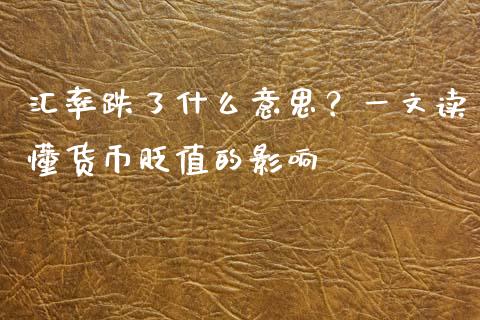 汇率跌了什么意思？一文读
懂货币贬值的影响